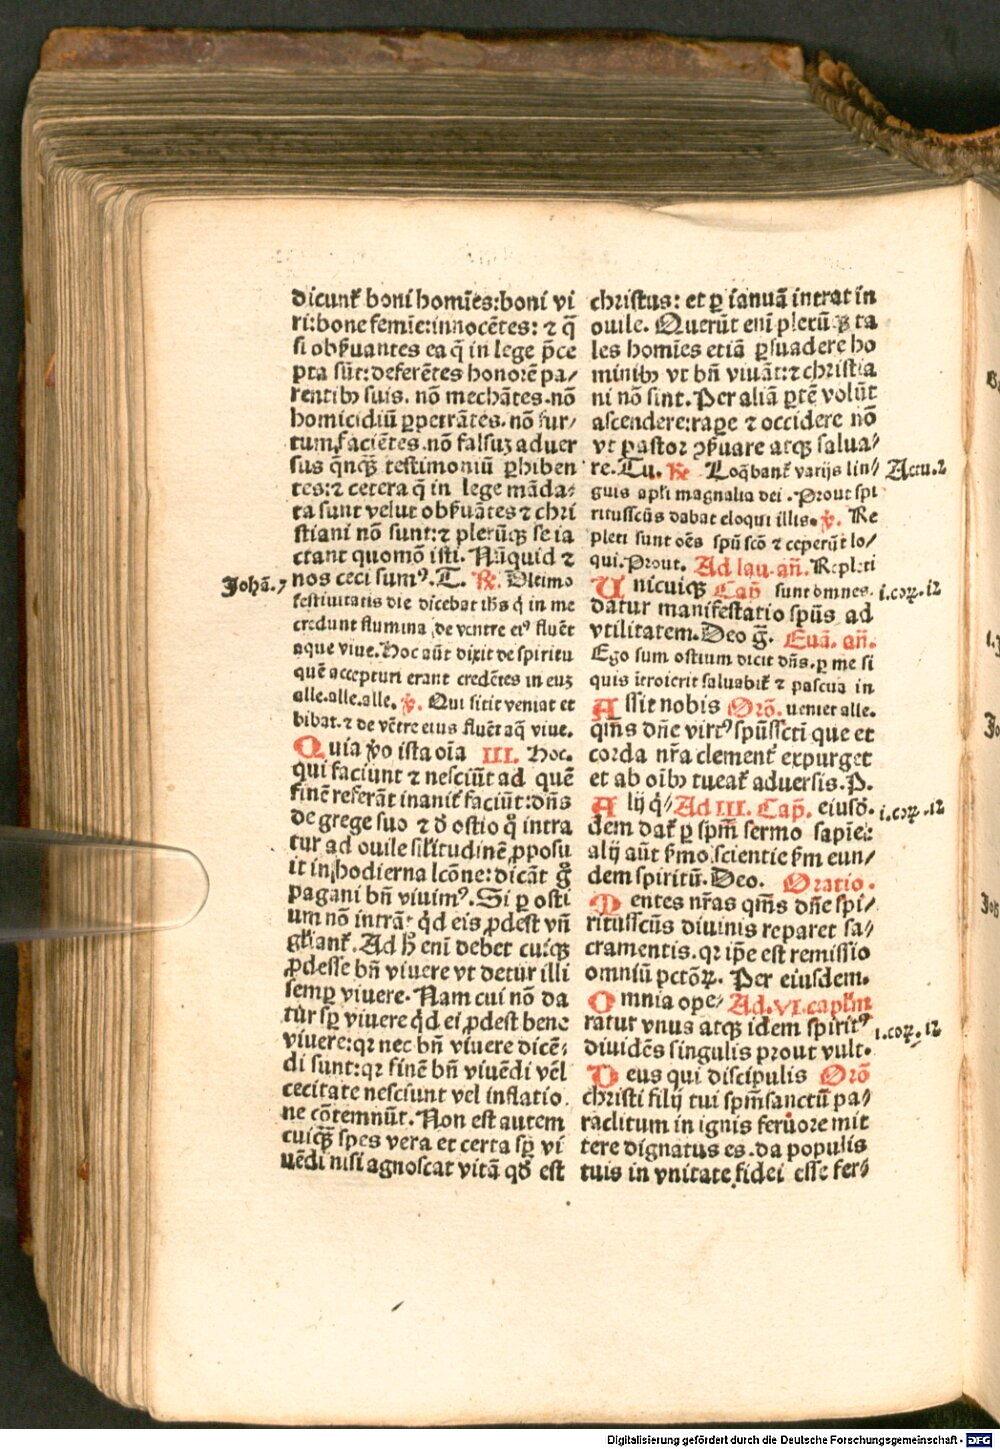 dicunt᷑ boni homīes: boni vi
ri: bone femīe: innocētes: ⁊ q̄
si obẜuantes ea q̄ in lege p̄ce
pta sūt: deferētes honorē pa/
rentibꝫ suis. nō mechātes. nō
homicidiū ꝑpetrātes. nō fur/
tum faciētes. nō falsuꝫ aduer
sus qnqꝫ testimoniū ꝑhiben
tes: ⁊ cetera q̄ in lege māda/
ta sunt velut obẜuātes ⁊ chri
stiani nō sunt: ⁊ plerūqꝫ se ia
ctant quomō isti. Nūquid ⁊
Johā. 7
nos ceci sumꝰ. T. ℟. Ultimo
festiuitatis die dicebat ihs q̇ in me
credunt flumina de ventre eiꝰ fluēt
aque viue. Hoc aūt dixit de spiritu
quē accepturi erant credētes in euꝫ
alle. alle. alle. ℣. Qui sitit veniat et
bibat. ⁊ de vētre eius fluēt aq̄ viue.
Quia ꝟo ista oīa III. Hoc.
qui faciunt ⁊ nesciūt ad quē
finē referāt inanit᷑ faciūt: dn̄s
de grege suo ⁊ ꝺ ostio q̊ intra
tur ad ouile silitudinē ꝓposu
it in hodierna lcōne: dicāt g̊
pagani bn̄ viuimꝰ. Si ꝑ osti
um nō intrāt qd̓ eis ꝓdest vn̄
gl̓iant᷑. Ad hͦ enī debet cuiqꝫ
ꝓdesse bn̄ viuere vt detur illi
semꝑ viuere. Nam cui nō da
tur sꝑ viuere qd̓ ei ꝓdest bene
viuere: qꝛ nec bn̄ viuere dicē/
di sunt: qꝛ finē bn̄ viuēdi vel
cecitate nesciunt vel inflatio
ne cōtemnūt. Non est autem
cuiqꝫ spes vera et certa sꝑ vi
uēdi nisi agnoscat vitā qd̓ est
christus: et ꝑ ianuā intrat in
ouile. Querūt enī plerūqꝫ ta
les homīes etiā ꝑsuadere ho
minibꝫ vt bn̄ viuāt: ⁊ christia
ni nō sint. Per aliā ꝑtē volūt
ascendere: raꝑe ⁊ occidere nō
vt pastor ꝯẜuare atqꝫ salua/
re. Tu. ℟ Loq̄bant᷑ varijs lin/
Actu. 2
guis apl̓i magnalia dei. Prout spi
ritussctūs dabat eloqui illis. ℣. Re
pleti sunt oēs spū scō ⁊ ceperūt lo/
qui. Prout. Ad lau. añ. Repleti
Unicuiqꝫ Cap̄ sunt omnes.
i. coꝝ. 12
datur manifestatio spūs ad
vtilitatem. Deo g̅. Euā. añ.
Ego sum ostium dicit dn̄s. ꝑ me si
quis itroierit saluabit᷑ ⁊ pascua in
Assit nobis Orō. ueniet alle.
qm̄s dn̄e virtꝰ spūssctī que et
corda nr̄a clement᷑ expurget
et ab oībꝫ tueat᷑ aduersis. P.
Alij q̇/ Ad III. Cap̄. eiusd̓.
i. coꝝ. 12
dem dat᷑ ꝑ spm̄ sermo sapiē:
alij aūt ẜmo scientie ẜm eun/
dem spiritū. Deo. Oratio.
Mentes nr̄as qm̄s dn̄e spi/
ritussctūs diuinis reparet sa/
cramentis. qꝛ ip̄e est remissio
omniū pctōꝝ. Per eiusdem.
Omnia ope/ Ad. VI. capl̓m
ratur vnus atqꝫ idem spiritꝰ
i. coꝝ. 12
diuidēs singulis prout vult.
Deus qui discipulis Orō
christi filij tui spm̄sanctū pa/
raclitum in ignis feruore mit
tere dignatus es. da populis
tuis in vnitate fidei esse fer/
Digitalisierung gefördert durch die Deutsche Forschungsgemeinschaft - DFG